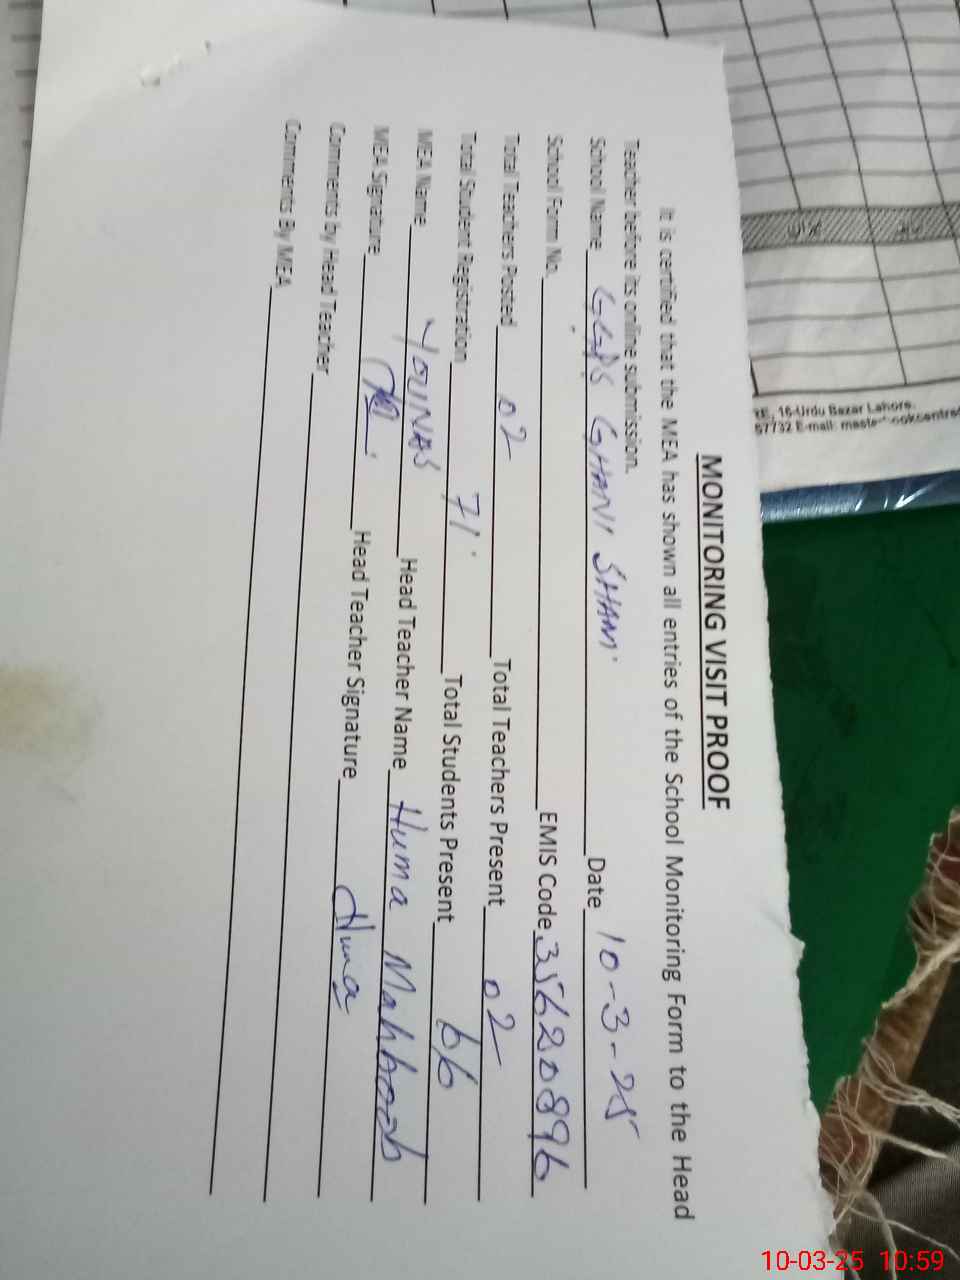 MONITORING VISIT PROOF
It is certified that the MEA has shown all entries of the School Monitoring Form to the Head
Teacher before its online submission.
School Name GGPS GHANI SHAM Date 10-3-25
School Form No. EMIS Code 35620896
Total Teachers Posted 02 Total Teachers Present 02
Total Student Registration 71 Total Students Present 66
MEA Name YOUNAS Head Teacher Name Huma Mahboob
MEA Signature Head Teacher Signature Huma
Comments by Head Teacher
Comments By MEA
16-Urdu Bazar Lahore.
57732 E-mail:
10-03-25 10:59